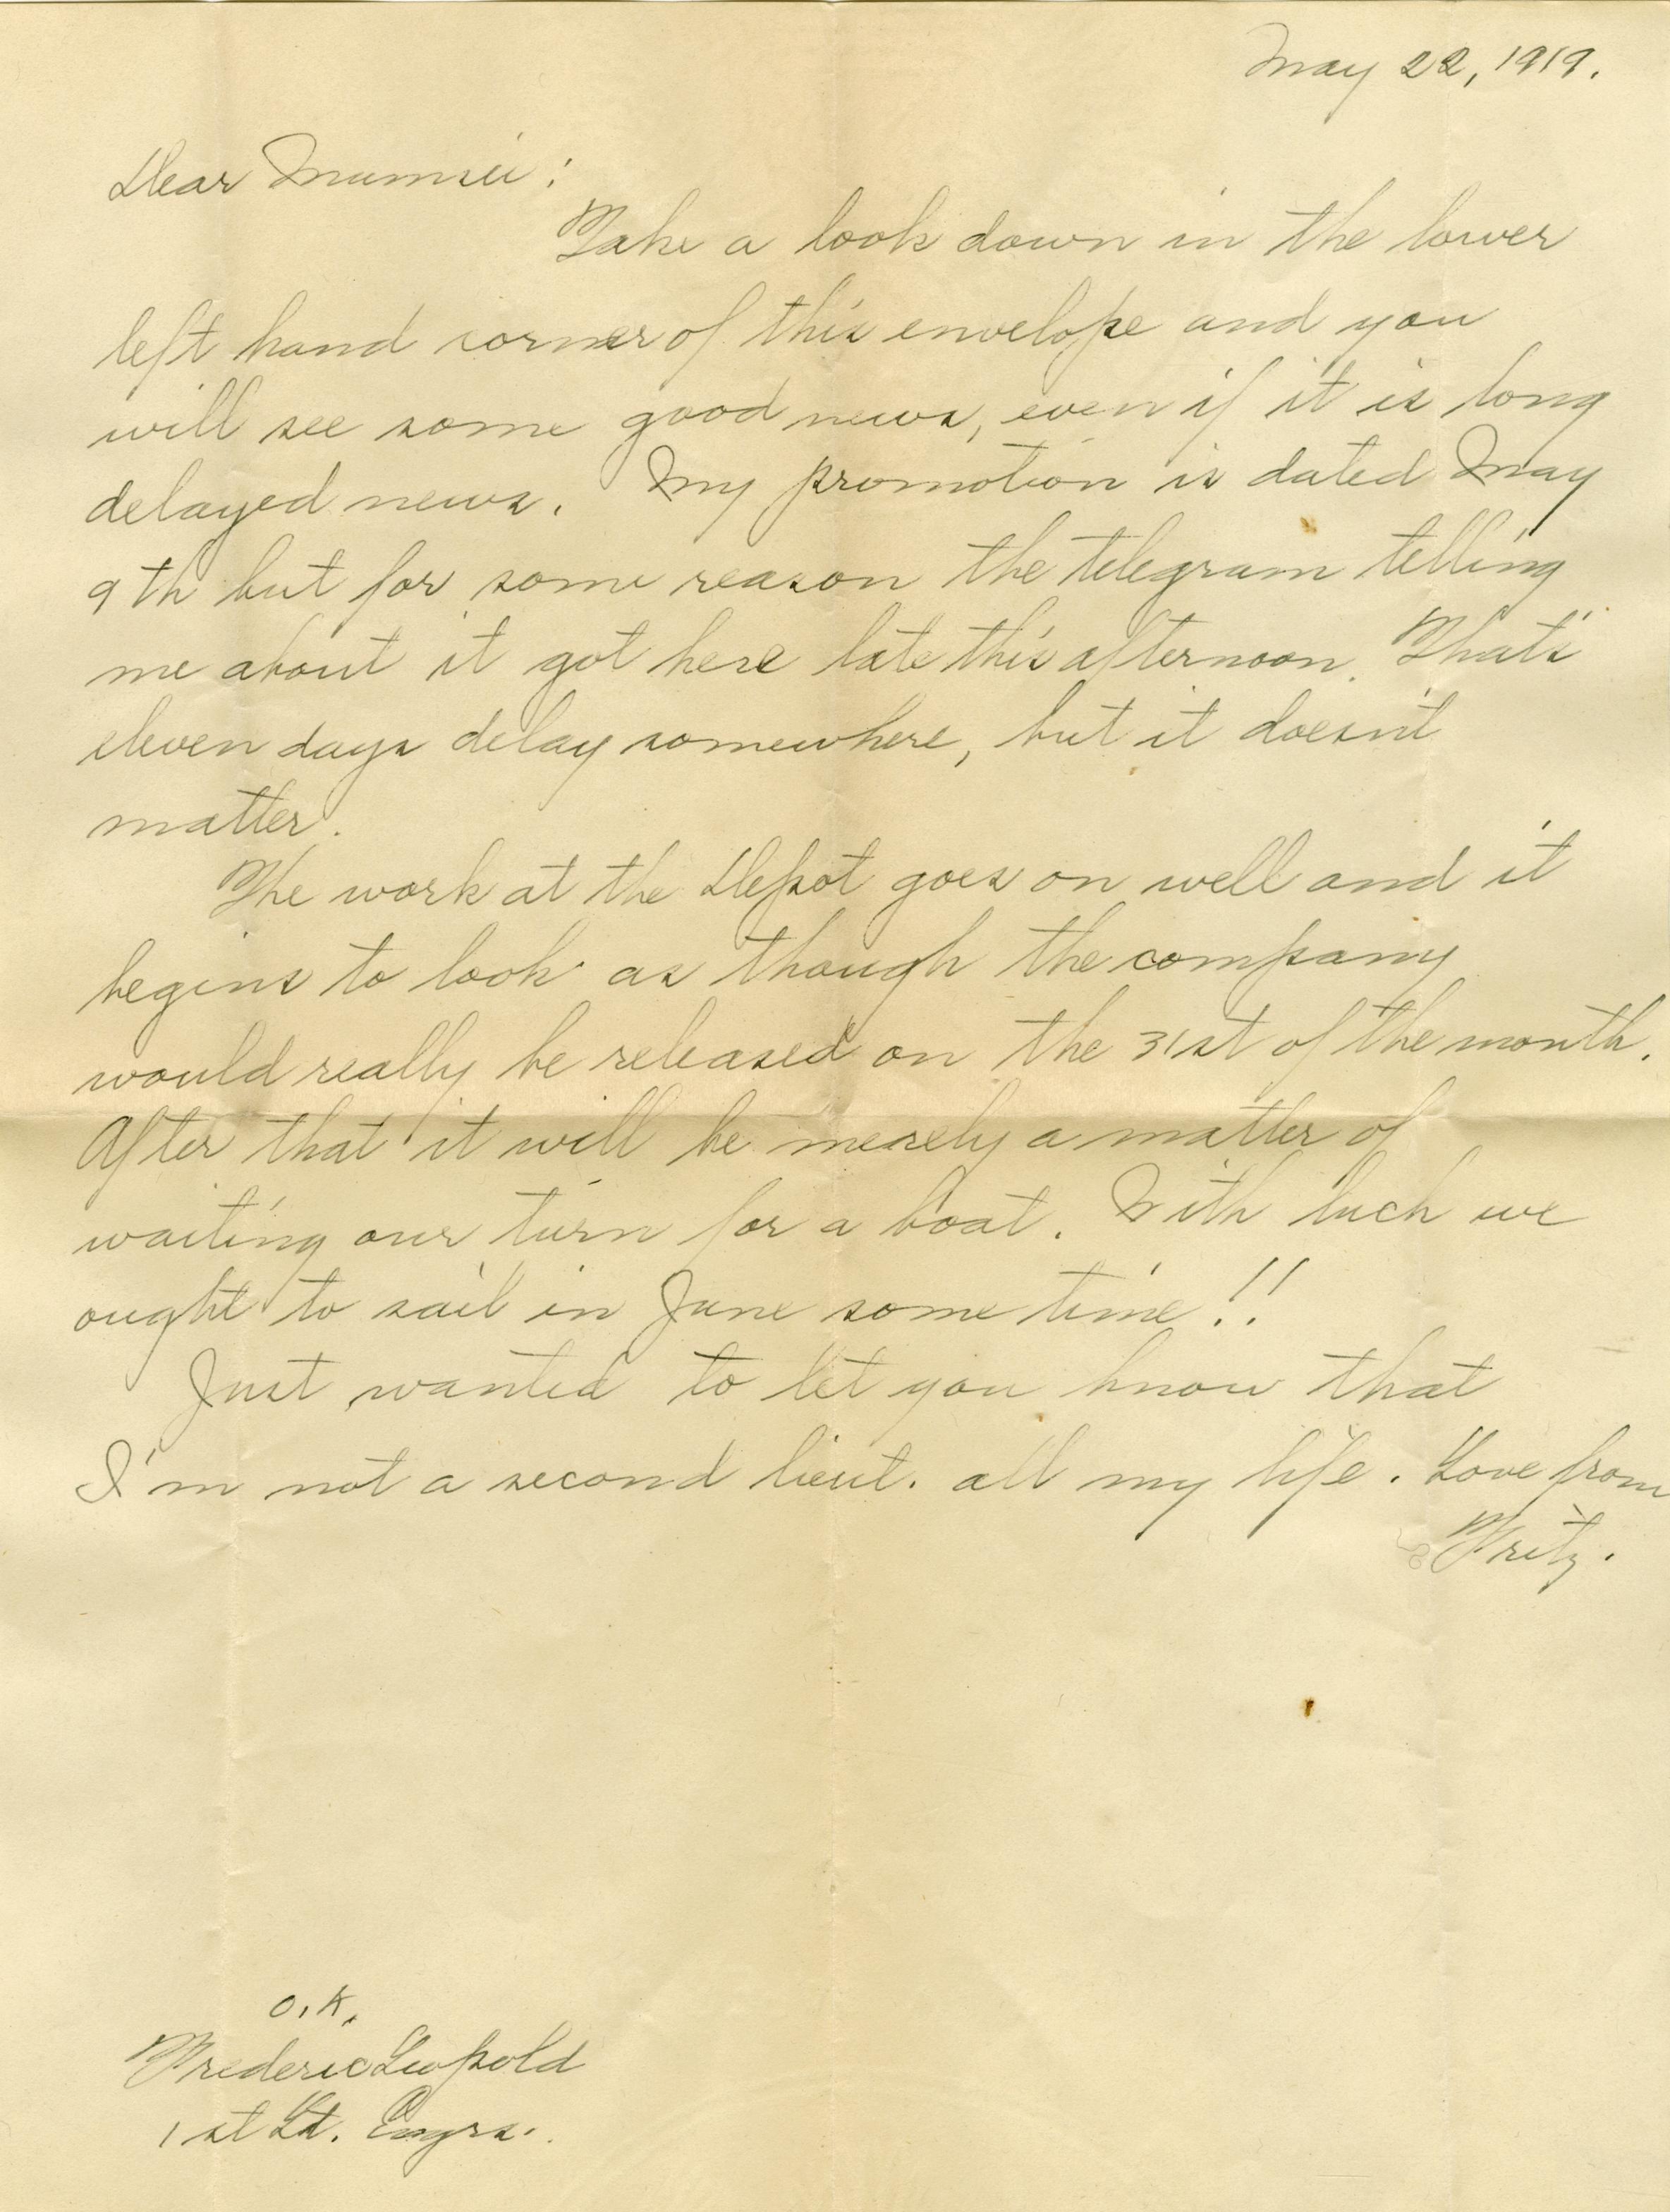 May 22, 1919.
Dear Mumsie:
Take a look down in the lower
left hand corner of this envelope and you
will see some good news, even if it is long
delayed news. My promotion is dated May
9th but for some reason the telegram telling
me about it got here late this afternoon. That's
eleven days delay somewhere, but it doesn't
matter.
The work at the Depot goes on well and it
begins to look as though the company
would really be released on the 31st of the month.
After that it will be merely a matter of
waiting our turn for a boat. With luck we
ought to sail in June some time!!
Just wanted to let you know that
I'm not a second lieut. all my life. Love from
Fritz.
O.K.
Frederic Leopold
1st Lt. Engrs.